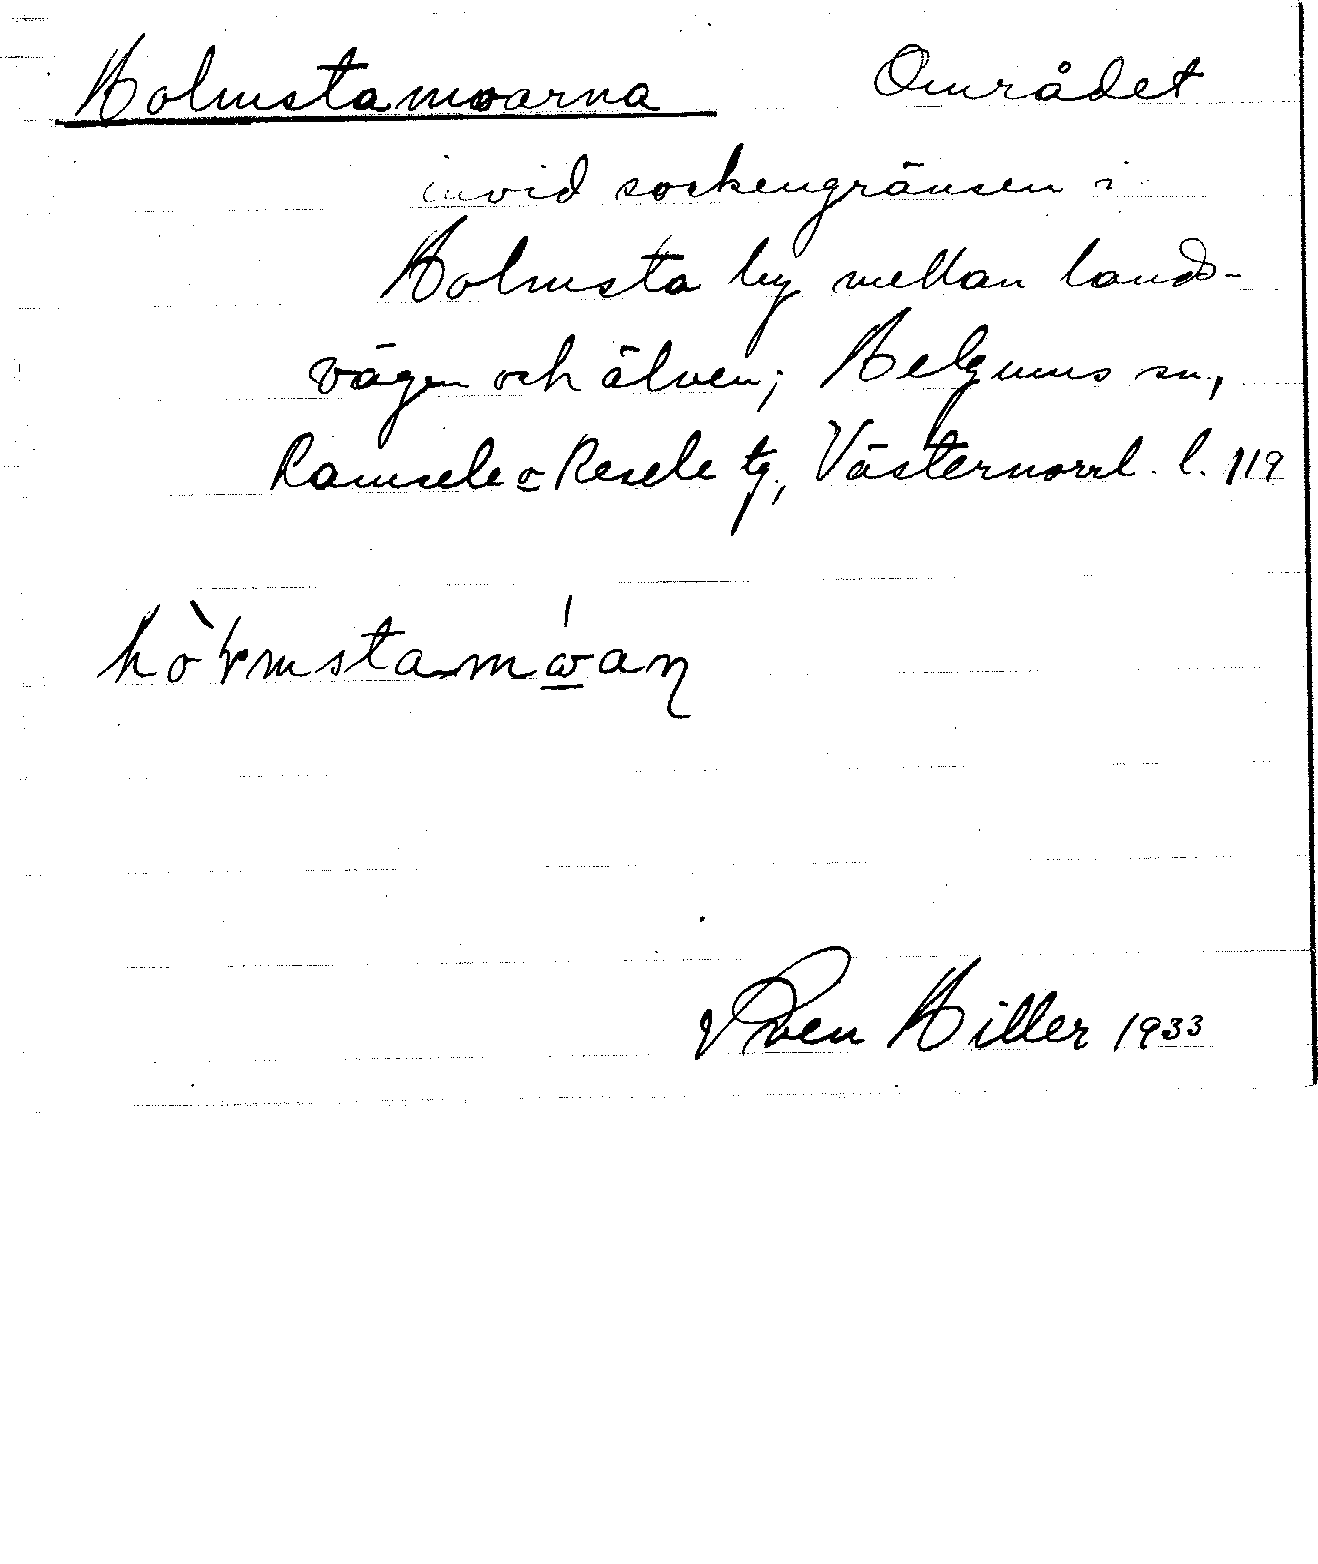 Holmstamoarna Området
invid sockengränsen i
Holmsta by mellan lands-
vägen och älven; Helgums sn,
Ramsele o Resele tg, Västernorrl. l. 119
Sven Hiller 1933